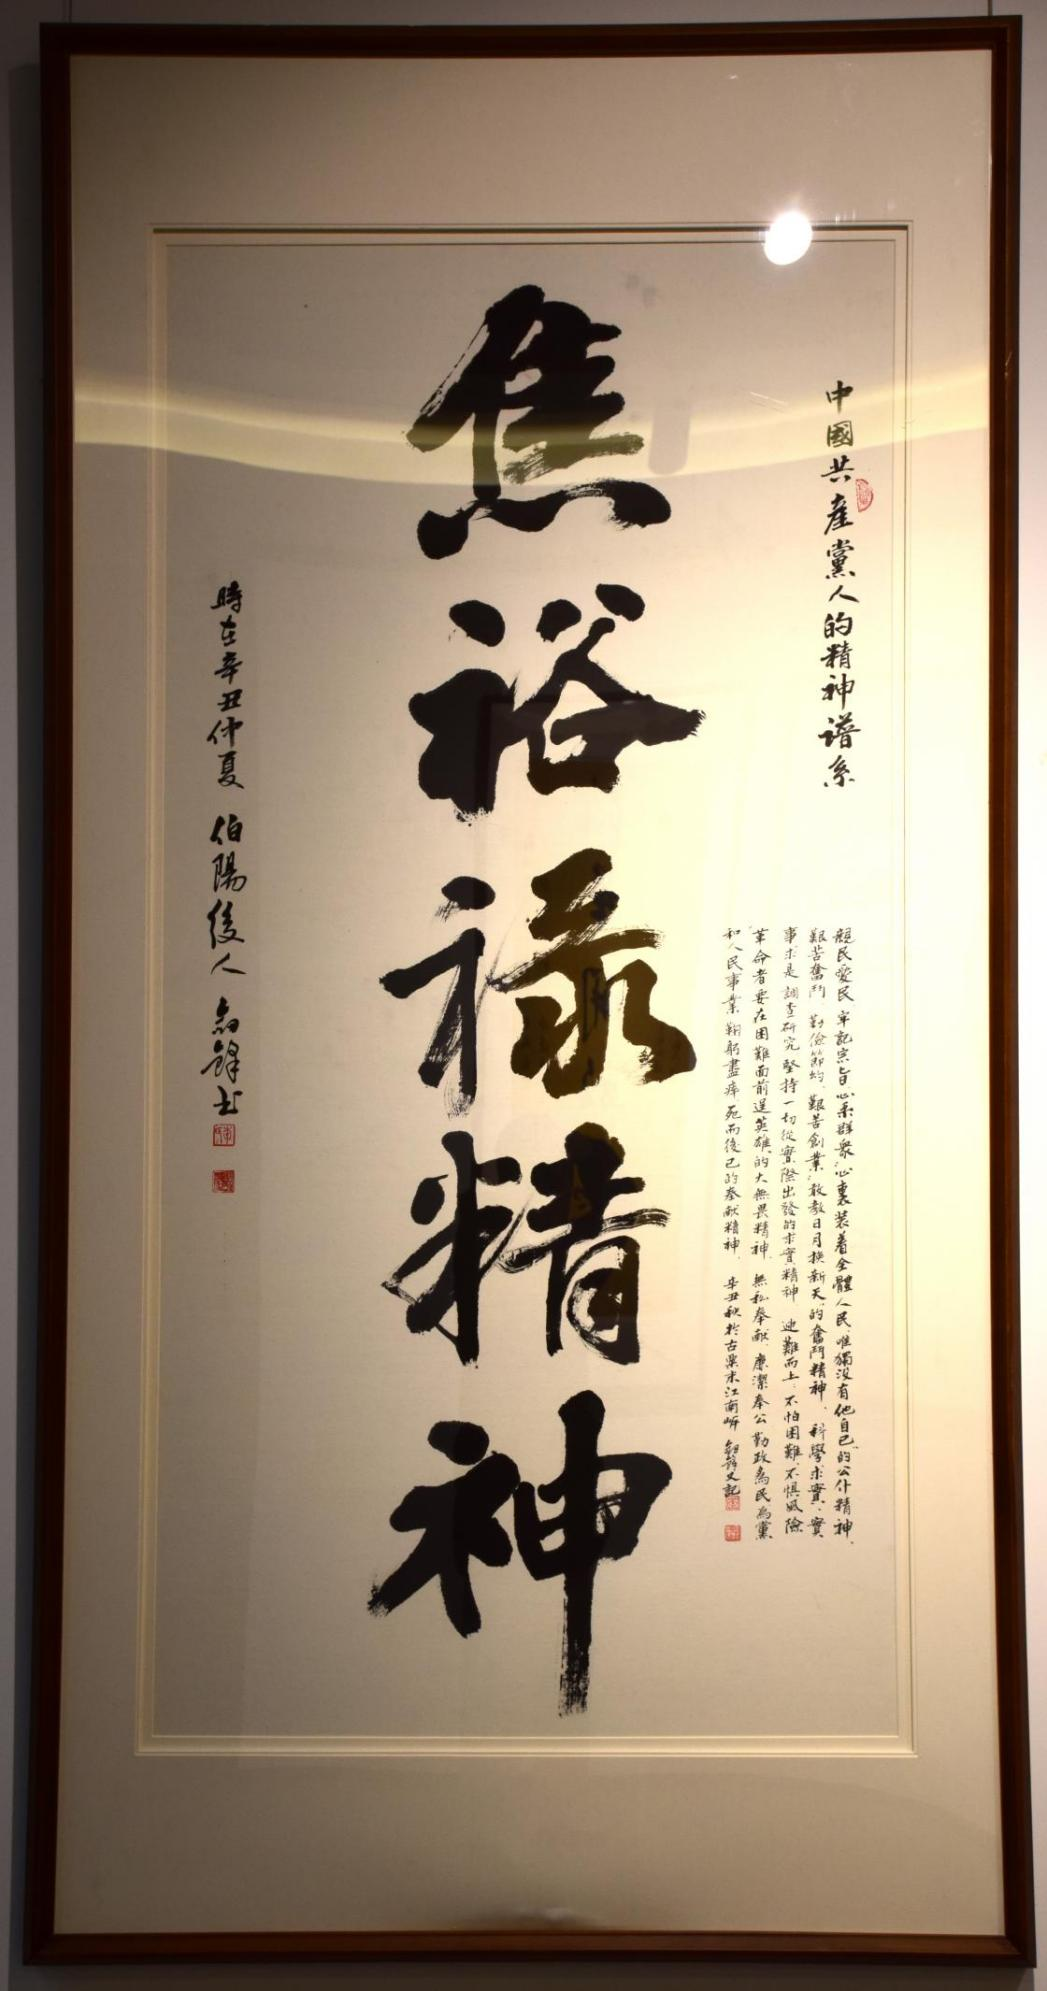 中國共產黨人的精神譜系
親民愛民牢記宗旨心系群衆心裏装着全體人民唯獨没有他自己的公仆精神、
艱苦奮鬥、勤儉節約、艱苦創業敢教日月换新天的奮鬥精神、科學求實、實
事求是調查研究堅持一切從實際出發的求實精神、迎難而上、不怕困難、不惧風險
革命者要在困難面前逞英雄的大無畏精神、無私奉献、廉潔奉公勤政為民為黨
和人民事業鞠躬盡瘁死而後已的奉献精神、辛丑秋於古雲木江南岍劍鋒又記
焦裕禄精神
時在辛丑仲夏 伯陽後人 劍鋒书